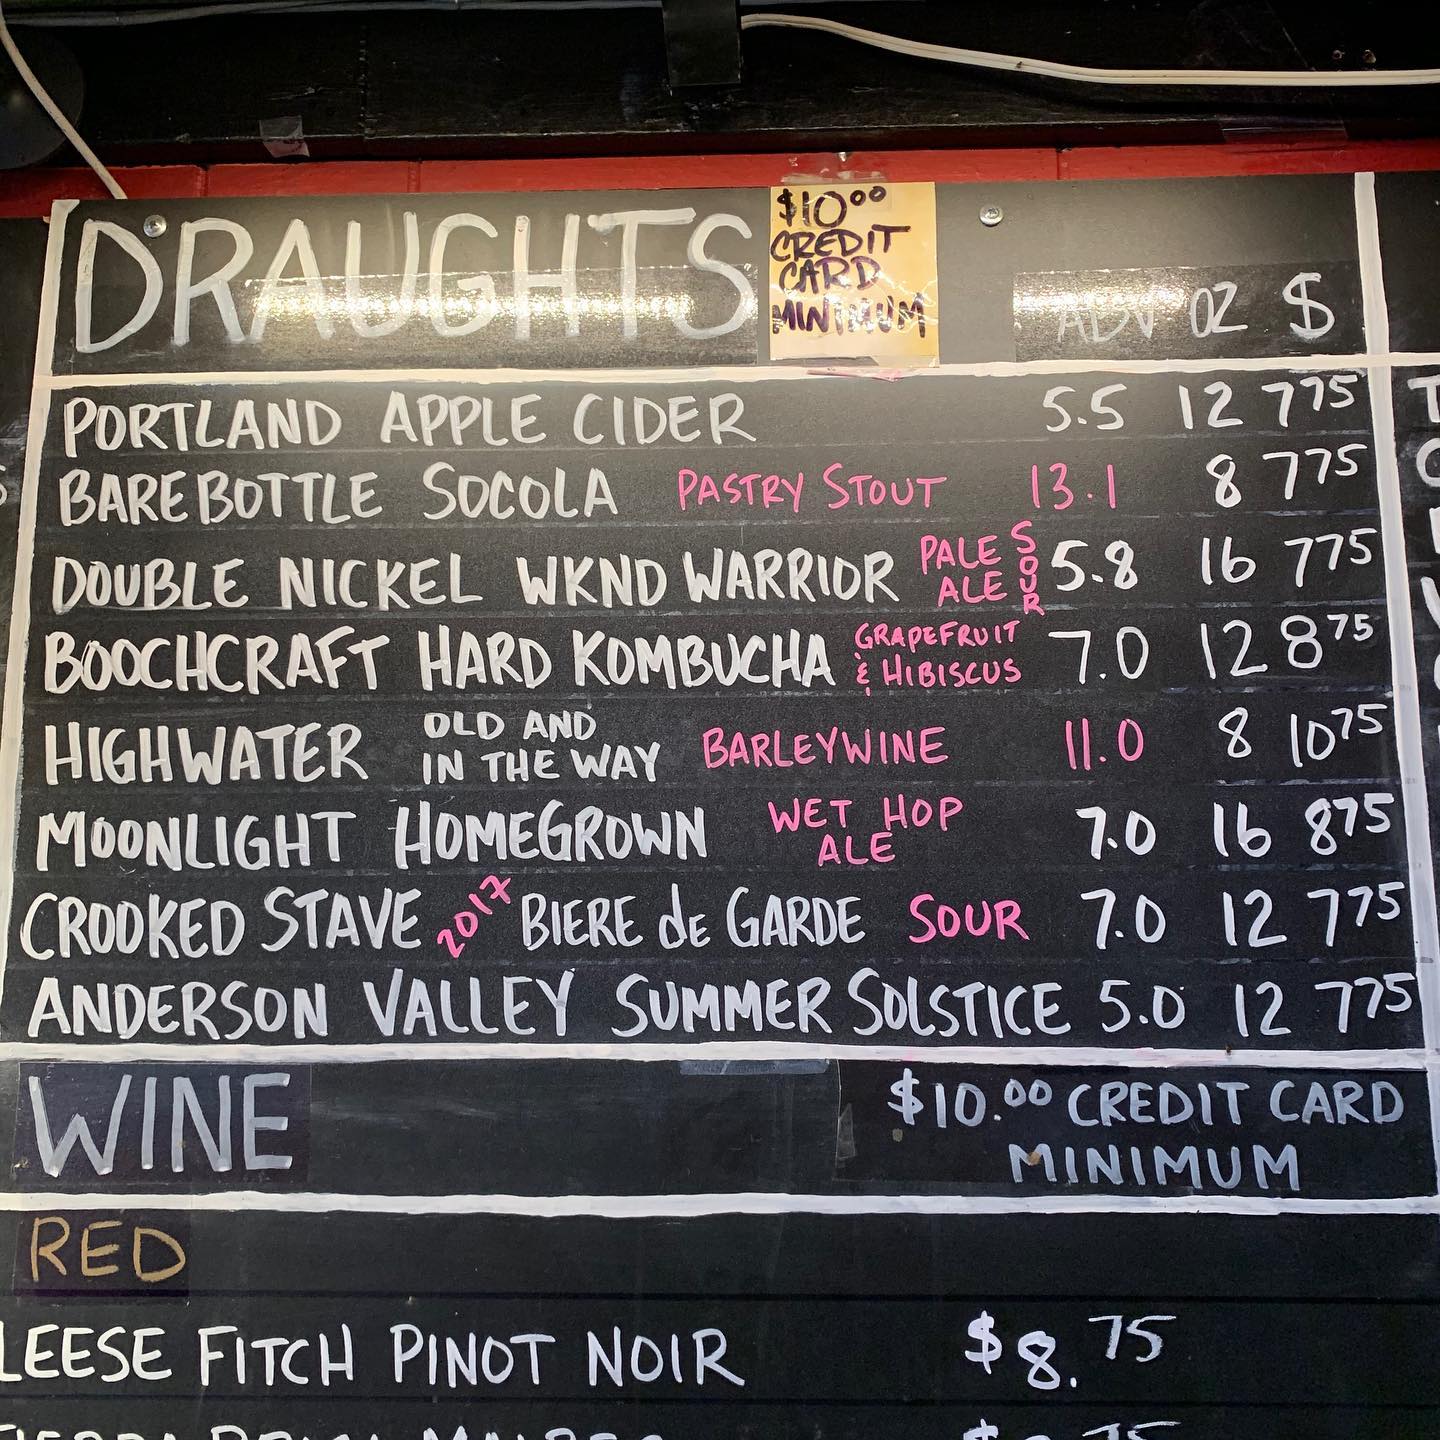 DRAUGHTS
$10.00
CREDIT
CARD
MINIMUM
ABV OZ $
PORTLAND APPLE CIDER 5.5 12 775
BAREBOTTLE SOCOLA PASTRY STOUT 13.1 8 775
DOUBLE NICKEL WKND WARRIOR PALE ALE SOUR 5.8 16 775
BOOCHCRAFT HARD KOMBUCHA GRAPEFRUIT & HIBISCUS 7.0 12 875
HIGHWATER OLD AND IN THE WAY BARLEYWINE 11.0 8 1075
MOONLIGHT HOMEGROWN WET HOP ALE 7.0 16 875
CROOKED STAVE 2017 BIERE de GARDE SOUR 7.0 12 775
ANDERSON VALLEY SUMMER SOLSTICE 5.0 12 775
WINE
$10.00 CREDIT CARD
MINIMUM
RED
LEESE FITCH PINOT NOIR $8.75